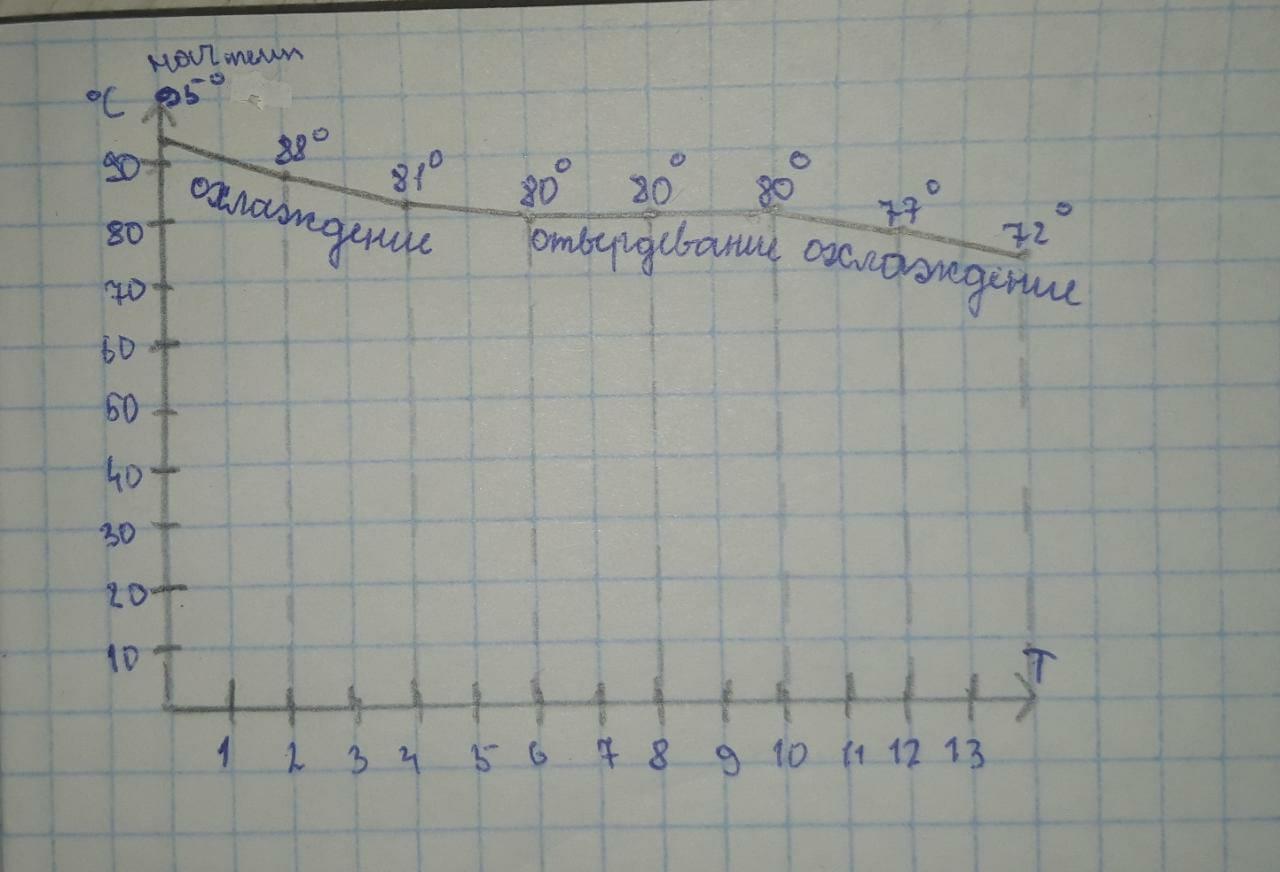 нач темп
°C 95°
88°
81°
80°
80°
80°
77°
72°
охлаждение
отвердевание
охлаждение
90
80
70
60
50
40
30
20
10
T
1 2 3 4 5 6 7 8 9 10 11 12 13